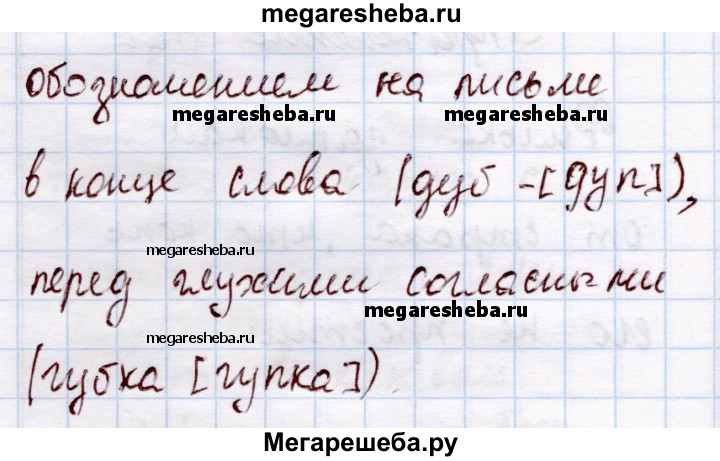 megaresheba.ru
обозначением на письме
megaresheba.ru megaresheba.ru
в конце слова (дуб -[дуп]),
megaresheba.ru
перед глухими согласными
megaresheba.ru megaresheba.ru
(губка [гупка])
Мегарешеба.ру